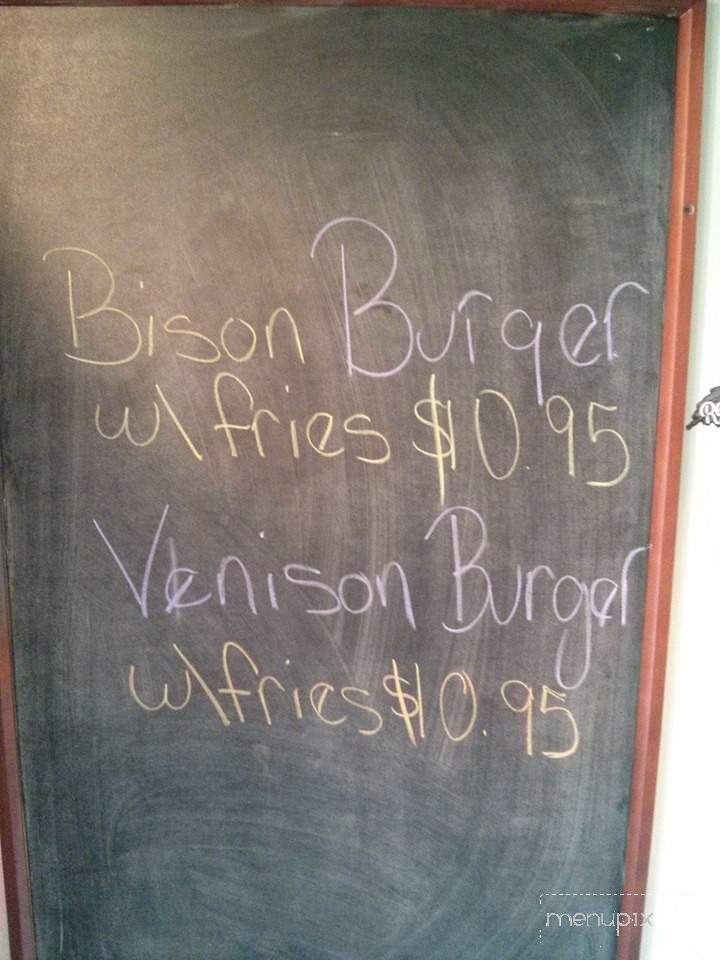 Bison Burger
w\fries $10.95
Venison Burger
w\fries $10.95
menupix